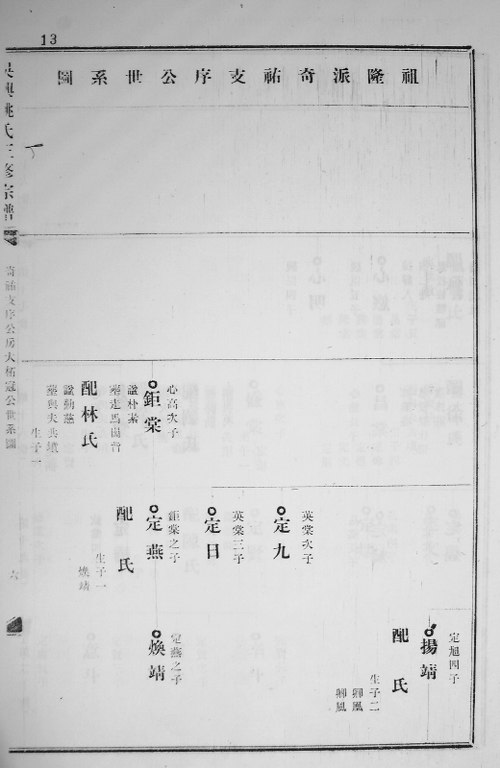 13
祖隆派奇祐支序公世系圖
吳興姚氏三修宗譜
奇祐支序公房大柘冠公世系圖
六
心高次子
鉅棠
諡朴素
配林氏
諡勤慈
生子一
定旭四子
揚靖
配 氏
生子二
英棠次子
定九
英棠三子
定日
鉅棠之子
定燕
配 氏
生子一
煥靖
定燕之子
煥靖